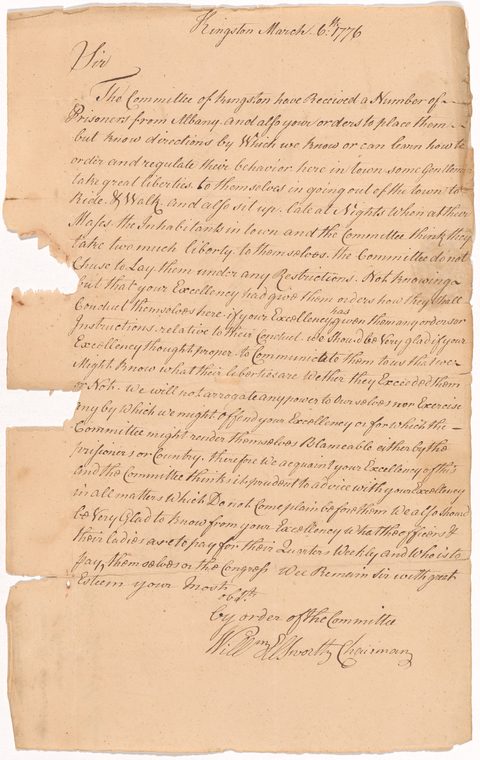 Kingston March 6th 1776
Sir
The Committee of Kingston have Received a Number of
Prisoners from Albany and also your orders to place them
but know directions by Which we know or can learn how to
order and regulate their behavior here in town some Gentlemen
take great liberties to themselves in going out of the town to
Ride & Walk and also sit up late at Nights When at their
the Inhabitants in town and the Committee think they
take two much liberty to themselves the Committee do not
Chuse to Lay them under any Restrictions Not knowing
but that your Excellency had give them orders how they Shall
Conduct themselves here if your Excellency has given them any orders or
Instructions relative to their Conduct we Should be Very glad if your
Excellency thought proper to Communicate them to us that we
Might know what their liberties are Wether they Exceeded them
or Not. We will not arrogate any power to Ourselves nor Exercise
any by Which we might offend your Excellency or for which the
Committee might render themselves Blameable either by the
prisoners or Country. therefore we acquaint your Excellency of this
and the Committee think it prudent to advice with your Excellency
in all matters Which Do not Come plain before them We also Should
be Very Glad to know from your Excellency What the officers &
their ladies are to pay for their Quarters Weekly and Who is to
pay, themselves or the Congress We Remain Sir with great
Esteem your Most
obdt.
by order of the Committee
Willm Elsworth Chairman